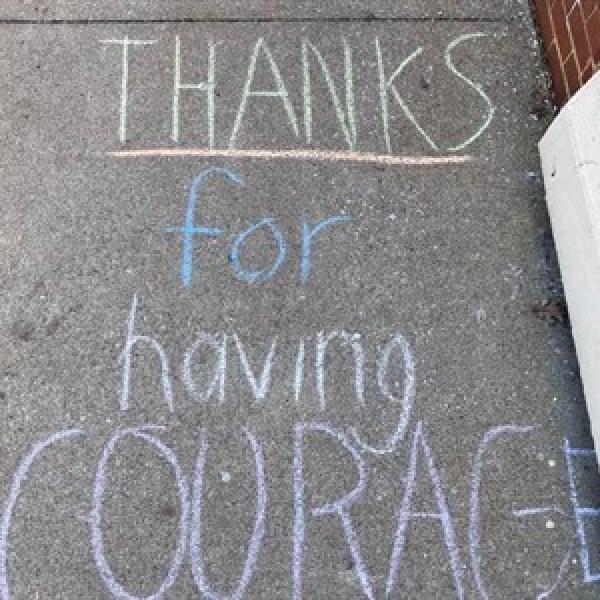 THANKS
for
having
COURAGE